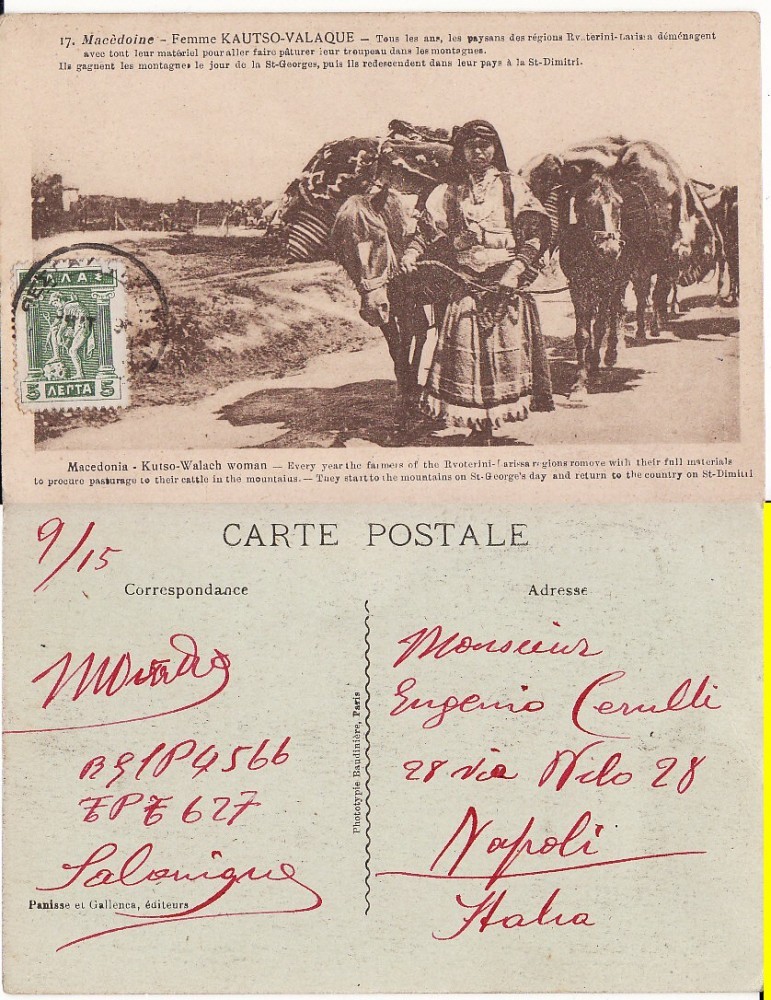 17. Macèdoine - Femme KAUTSO-VALAQUE — Tous les ans, les paysans des régions Rvoterini-Larissa déménagent
avec tout leur matériel pour aller faire pâturer leur troupeau dans les montagnes.
Ils gagnent les montagnes le jour de la St-Georges, puis ils redescendent dans leur pays à la St-Dimitri.
ΕΛΛΑΣ
5 ΛΕΠΤΑ 5
Macedonia - Kutso-Walach woman — Every year the farmers of the Rvoterini-Larissa regions romove with their full materials
to procure pasturage to their cattle in the mountains. — They start to the mountains on St-George's day and return to the country on St-Dimitri
CARTE POSTALE
9/15
Correspondance
Adresse
Monsieur
Eugenio Cerulli
28 via Nilo 28
Napoli
Italia
4566
EPE 627
Salonique
Panisse et Gallenca, éditeurs
Phototypie Baudinière, Paris